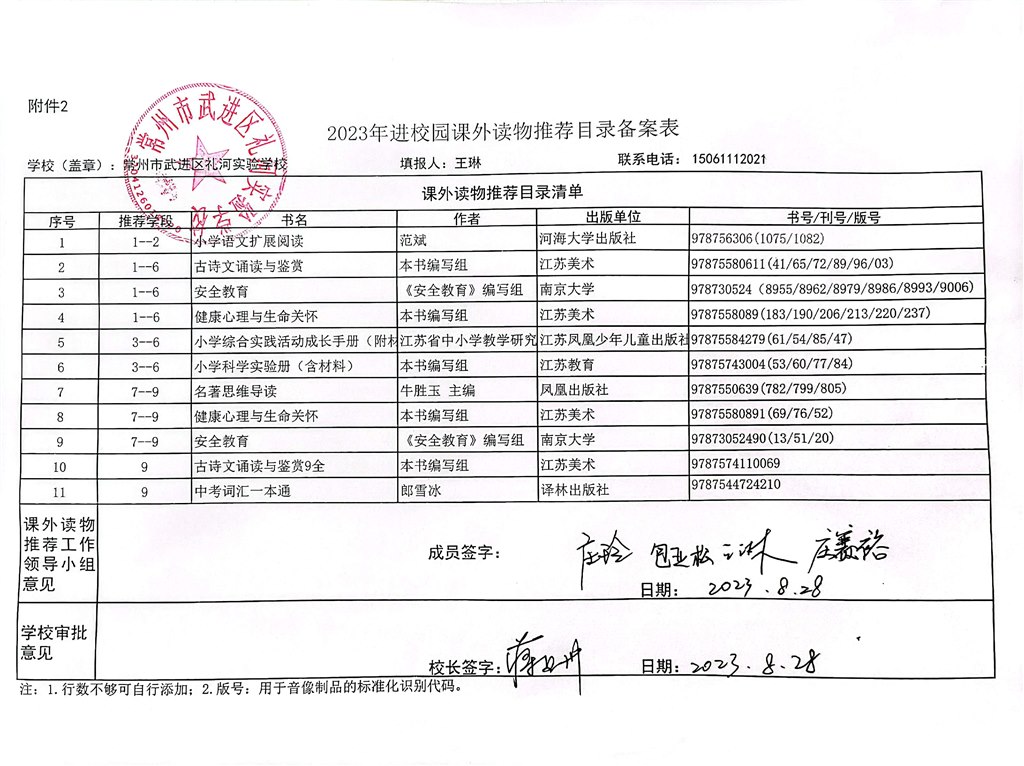 附件2
2023年进校园课外读物推荐目录备案表
学校（盖章）：常州市武进区礼河实验学校 填报人：王琳 联系电话：15061112021
课外读物推荐目录清单
序号 推荐学段 书名 作者 出版单位 书号/刊号/版号
1 1--2 小学语文扩展阅读 范斌 河海大学出版社 978756306(1075/1082)
2 1--6 古诗文诵读与鉴赏 本书编写组 江苏美术 97875580611(41/65/72/89/96/03)
3 1--6 安全教育 《安全教育》编写组 南京大学 978730524（8955/8962/8979/8986/8993/9006)
4 1--6 健康心理与生命关怀 本书编写组 江苏美术 9787558089(183/190/206/213/220/237)
5 3--6 小学综合实践活动成长手册（附材 江苏省中小学教学研究 江苏凤凰少年儿童出版社 97875584279(61/54/85/47)
6 3--6 小学科学实验册（含材料） 本书编写组 江苏教育 97875743004(53/60/77/84)
7 7--9 名著思维导读 牛胜玉 主编 凤凰出版社 9787550639(782/799/805)
8 7--9 健康心理与生命关怀 本书编写组 江苏美术 97875580891(69/76/52)
9 7--9 安全教育 《安全教育》编写组 南京大学 97873052490(13/51/20)
10 9 古诗文诵读与鉴赏9全 本书编写组 江苏美术 9787574110069
11 9 中考词汇一本通 郎雪冰 译林出版社 9787544724210
课外读物推荐工作领导小组意见
成员签字： 庄玲 包亚松 王琳
日期： 2023.8.28
学校审批意见
校长签字： 日期：2023.8.28
注：1.行数不够可自行添加；2.版号：用于音像制品的标准化识别代码。
常州市武进区礼河实验学校